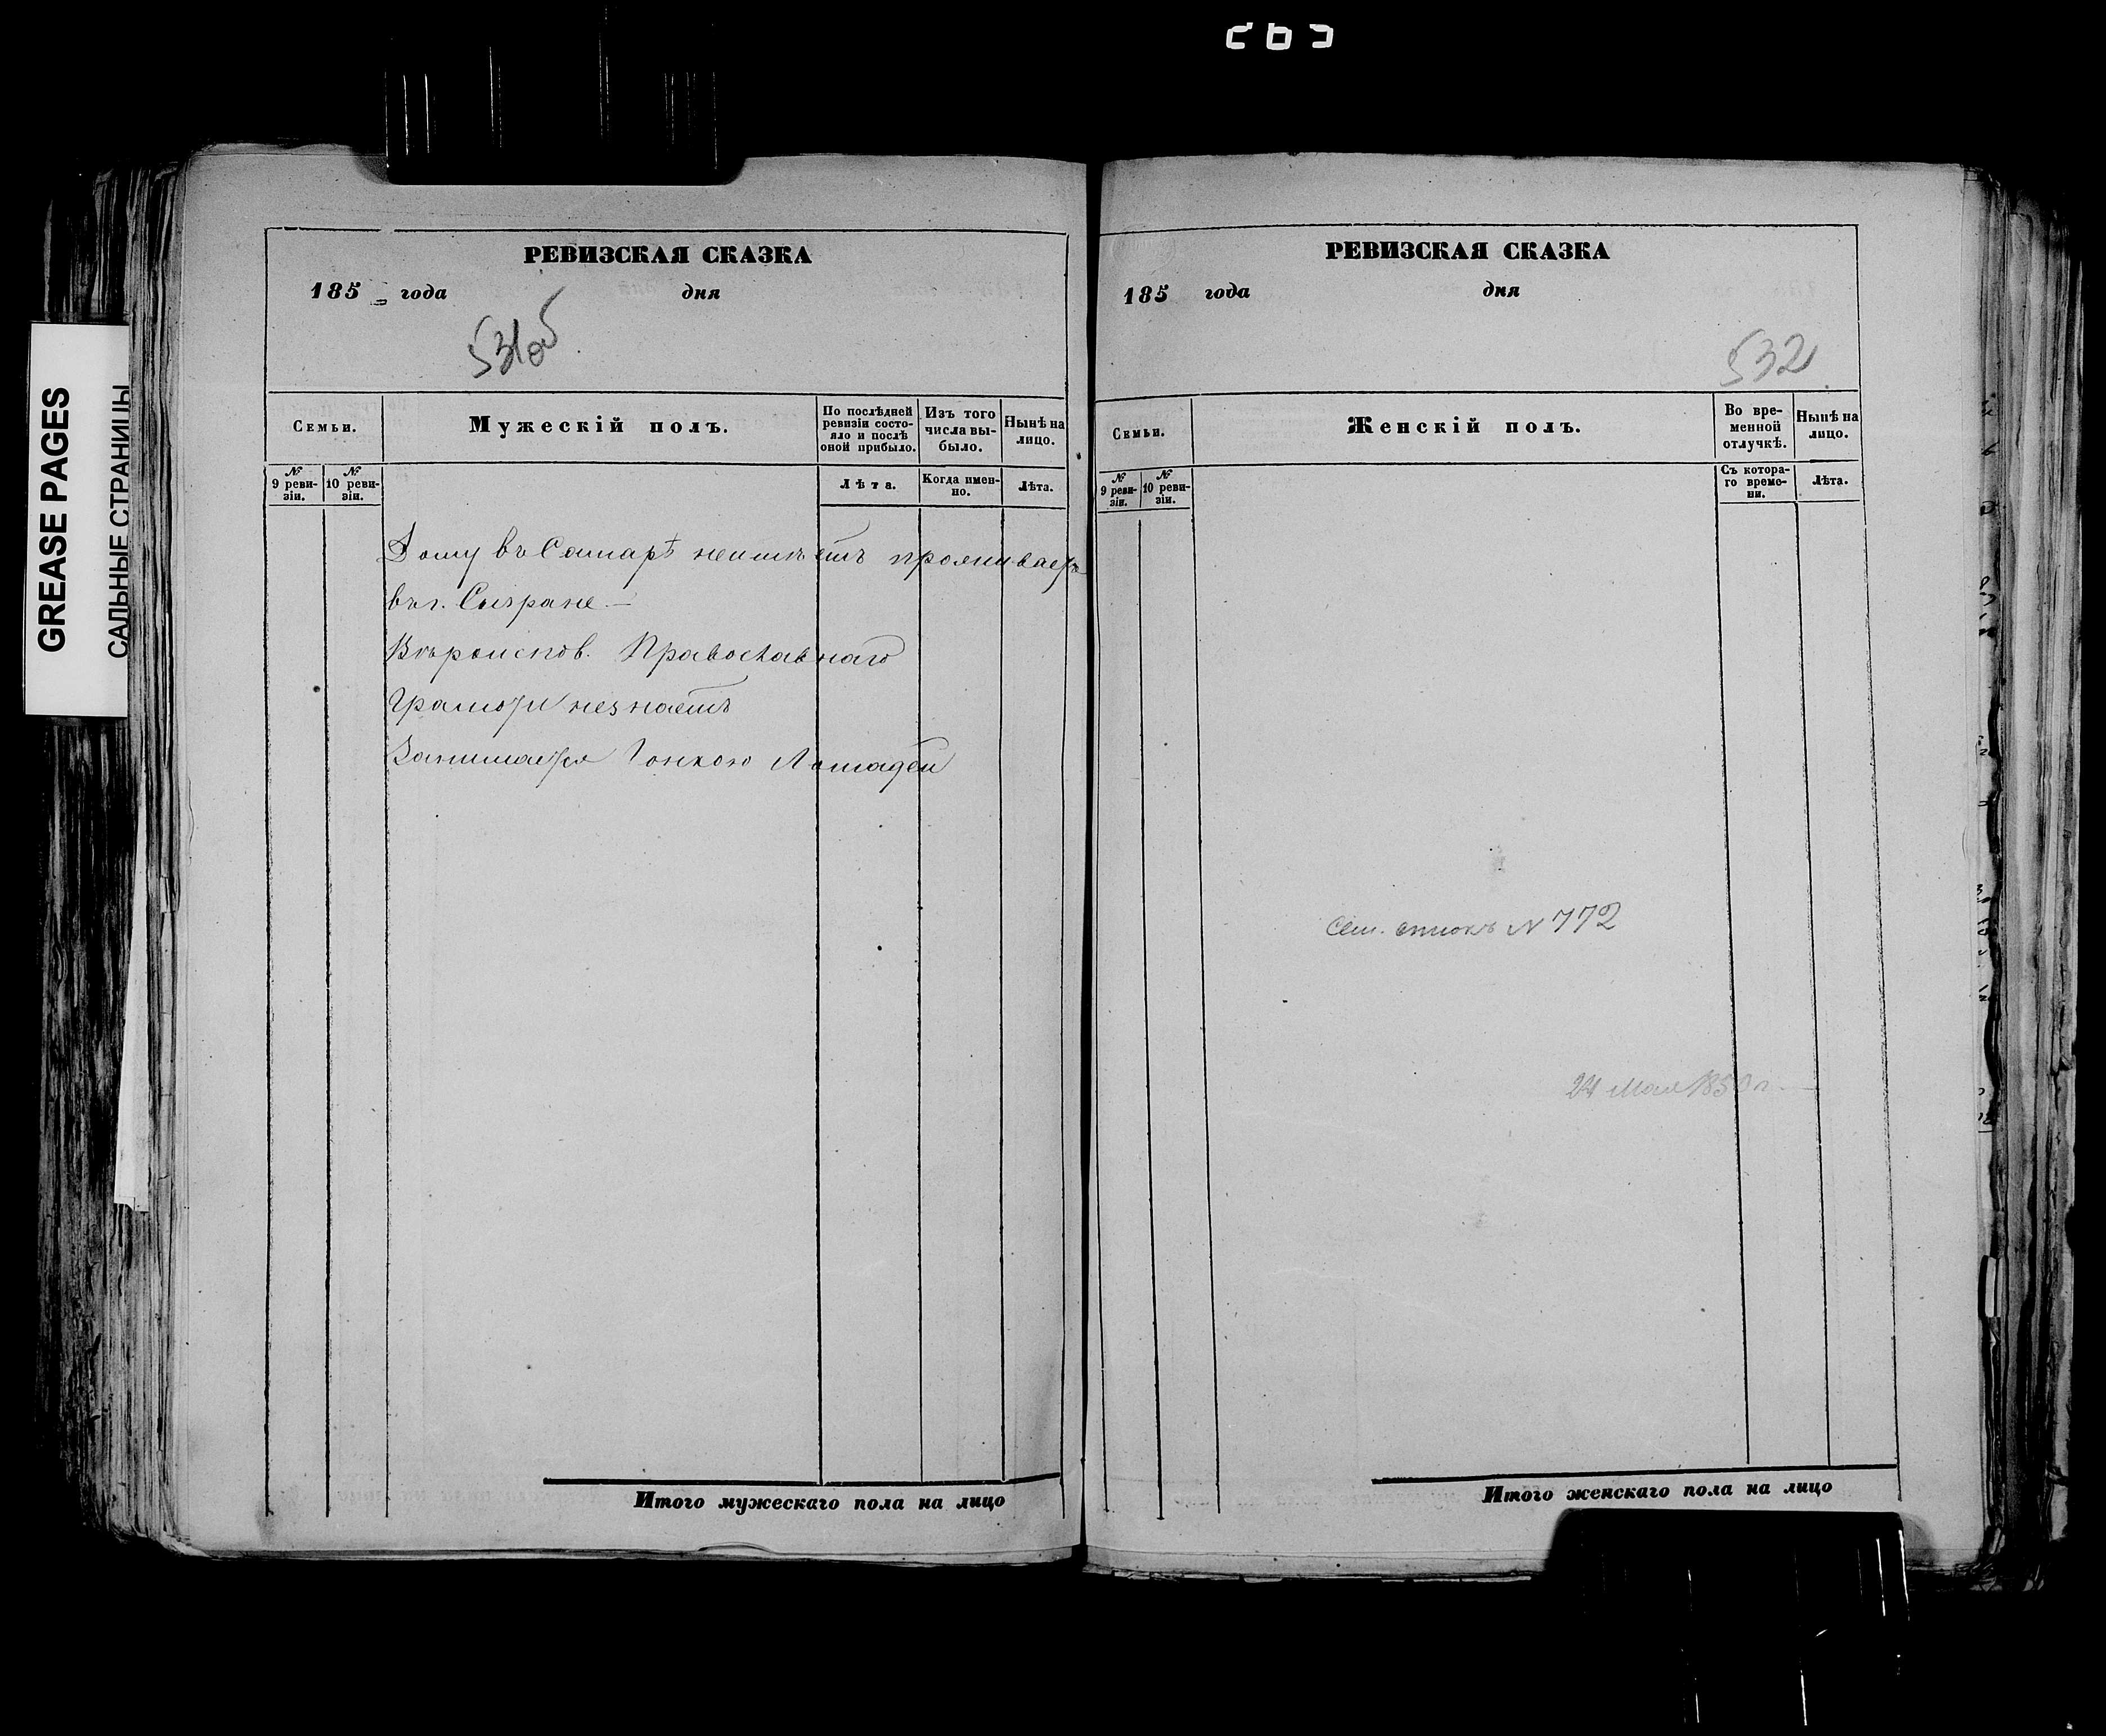 GREASE PAGES
САЛЬНЫЕ СТРАНИЦЫ
РЕВИЗСКАЯ СКАЗКА
185 года дня
531об
Семьи.
Мужескій полъ.
По послѣдней ревизіи состояло и послѣ оной прибыло.
Изъ того числа выбыло.
Нынѣ на лицо.
№ 9 ревизіи.
№ 10 ревизіи.
Лѣта.
Когда именно.
Лѣта.
Дому въ Самарѣ неимѣетъ проживаетъ
въ г. Сызране. —
Вѣроисповѣд. Православнаго
Грамоти незнаетъ
Занимается Гонкою Лошадей
Итого мужескаго пола на лицо
РЕВИЗСКАЯ СКАЗКА
185 года дня
532
Семьи.
Женскій полъ.
Во временной отлучкѣ.
Нынѣ на лицо.
№ 9 ревизіи.
№ 10 ревизіи.
Съ котораго времени.
Лѣта.
Сем. списокъ N 772
24 Мая
Итого женскаго пола на лицо